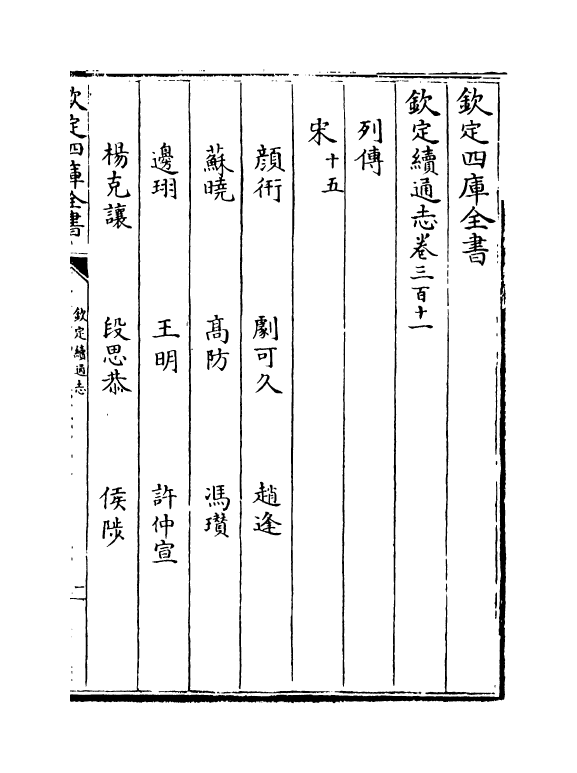 欽定四庫全書
欽定續通志卷三百十一
列傳
宋十五
顔衎 劇可久 趙逢
蘇曉 髙防 馮瓚
邊珝 王明 許仲宣
楊克讓 段思恭 侯陟
欽定四庫全書 欽定續通志